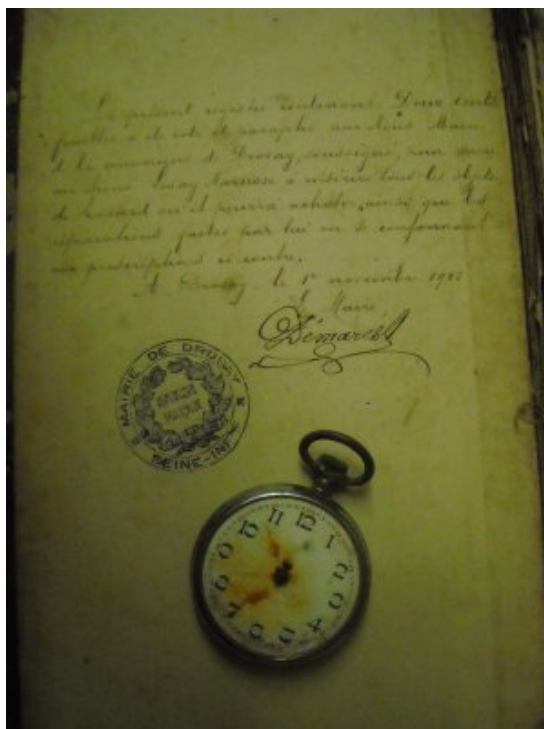 Le présent registre contenant Deux cents
feuillets a été coté et paraphé par Nous Maire
de la commune de Drosay, soussigné, pour
au sieur Narcisse à inscrire tous les objets
de hasard qu'il pourra acheter, ainsi que les
réparations faites par lui en se conformant
aux prescriptions ci contre.
A Drosay le 1er novembre
Le Maire
Démarest
MAIRIE DE DROSAY
SEINE-INF
11 12 1 2 3 4 5 6 7 8 9 10